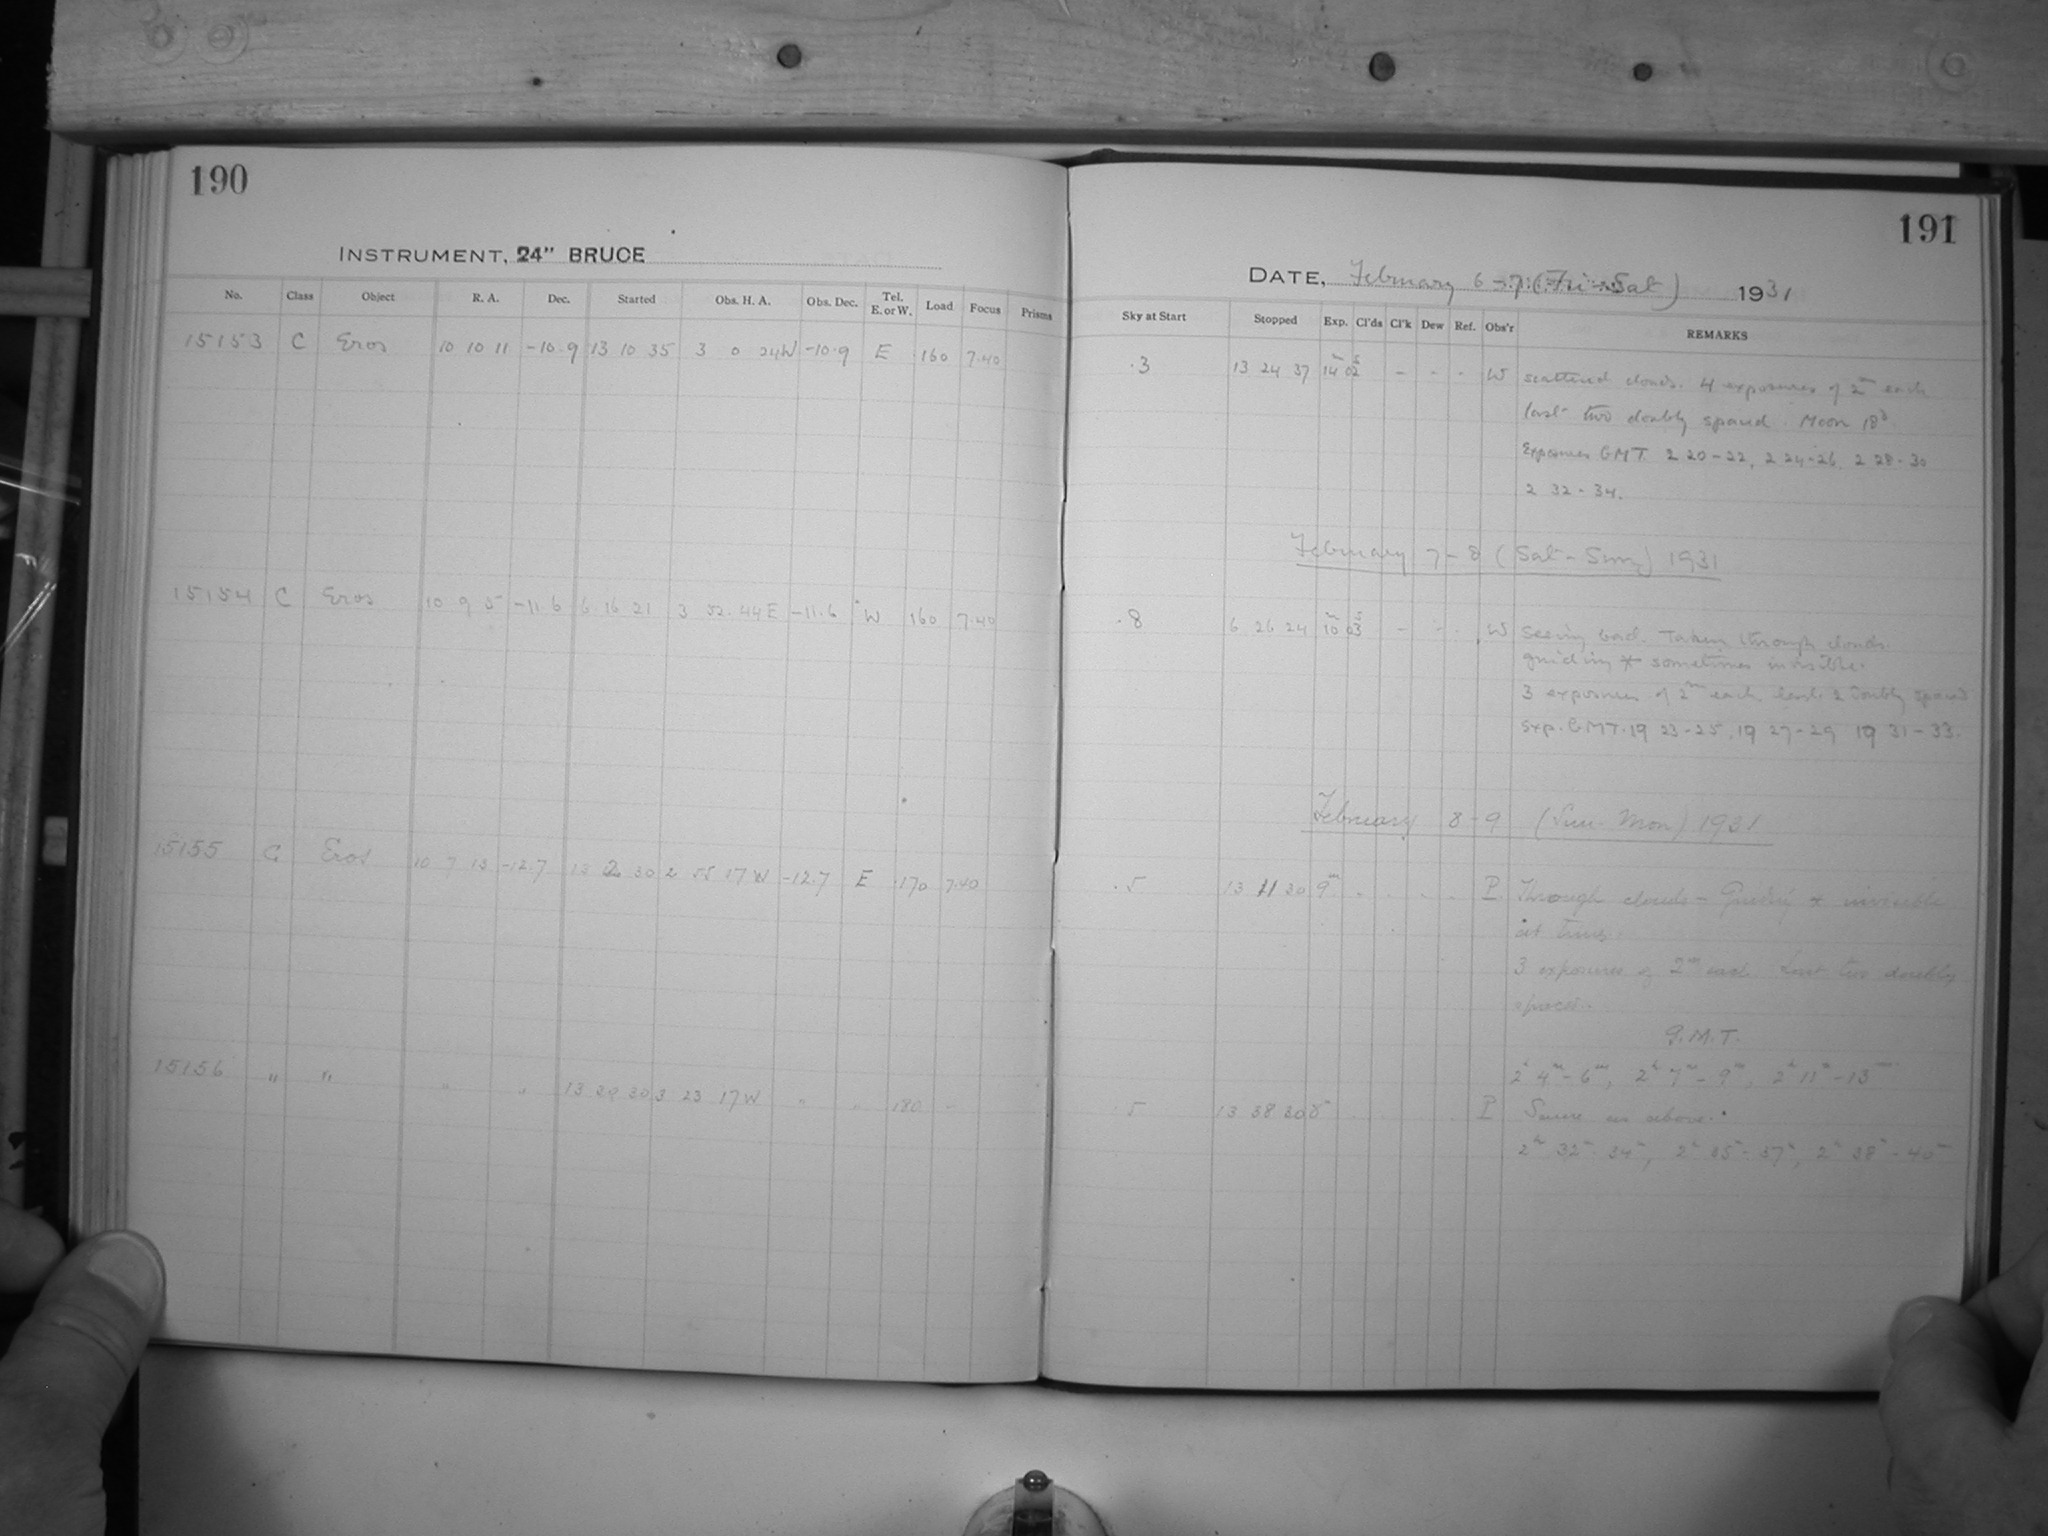 190
INSTRUMENT, 24" BRUCE
No. Class Object R. A. Dec. Started Obs. H. A. Obs. Dec. Tel. E. or W. Load Focus Prisms
15153 C Eros 10 10 11 -10.9 13 10 35 3 0 24W -10.9 E 160 7.40
15154 C Eros 10 9 5 -11.6 6 16 21 3 52 44 E -11.6 W 160 7.40
15155 C Eros 10 7 13 -12.7 13 2 30 2 55 17 W -12.7 E 170 7.40
15156 " " " " 13 30 30 3 23 17 W " " 180 -
191
DATE, February 6-7 (Fri-Sat) 1931
Sky at Start Stopped Exp. Cl'ds Cl'k Dew Ref. Obs'r REMARKS
.3 13 24 37 14m 02s - - - W scattered clouds. 4 exposures of 2m each
last two doubly spaced. Moon 18d
Exposures GMT 2 20-22, 2 24-26, 2 28-30
2 32-34.
February 7-8 (Sat-Sun) 1931
.8 6 26 24 10m 03s - - - W Seeing bad. Taken through clouds.
guiding * sometimes invisible.
3 exposures of 2m each last 2 doubly spaced
Exp. GMT. 19 23-25, 19 27-29 19 31-33.
February 8-9 (Sun-Mon) 1931
.5 13 11 30 9m . . . . P. Through clouds - Guiding * invisible
at times.
3 exposures of 2m each Last two doubly
spaced.
G.M.T.
2h 4m-6m, 2h 7m-9m, 2h 11m-13m
.5 13 38 30 8m P Same as above.
2h 32m-34m, 2h 35m-37m, 2h 38m-40m